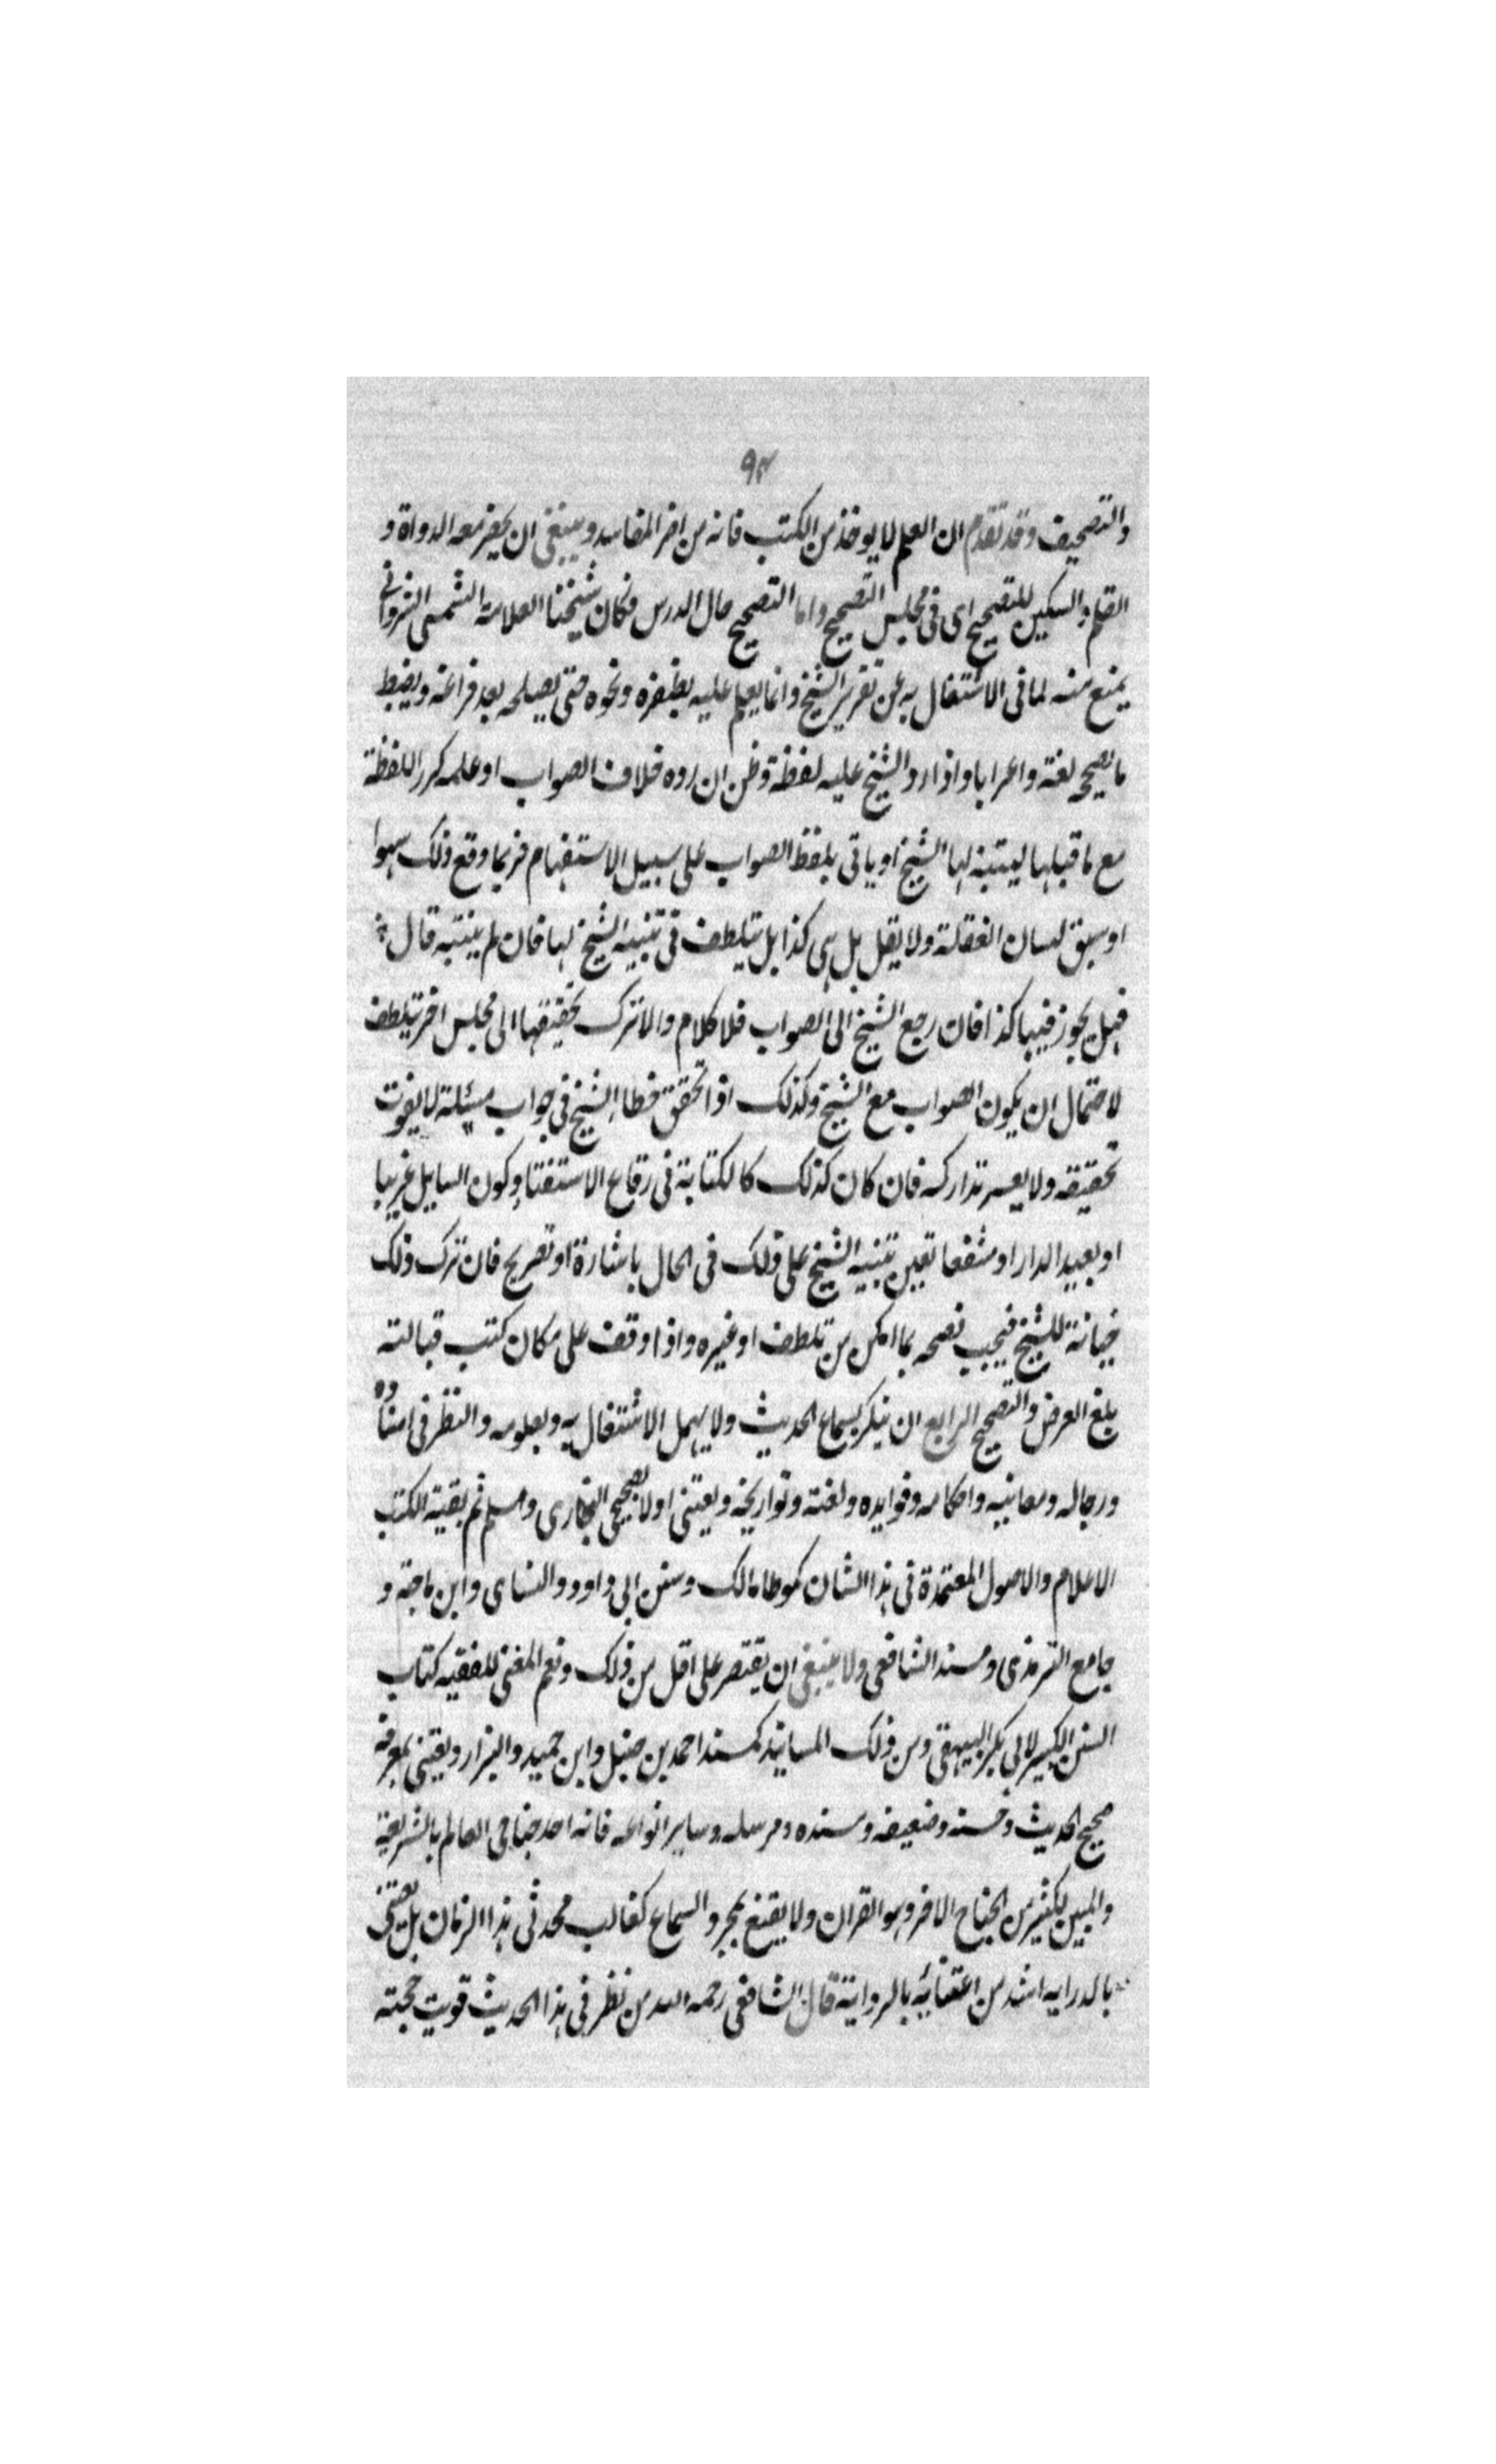 ٩٣
والتصحيف وقد تقدم ان العلم لا يوخذ من الكتب فانه من اضر المفاسد وينبغى ان يحضر معه الدواة و
القلم والسكين للتصحيح اى فى مجلس التصحيح واما التصحيح حال الدرس فكان شيخنا العلامة الشمس الشروانى
يمنع منه لما فى الاشتغال به عن تقرير الشيخ وانما يعلم عليه بظفره ونحوه حتى يصلحه بعد فراغه ويضبط
ما يصححه لغة واعرابا واذا رد الشيخ عليه لفظة وظن ان رده خلاف الصواب او علمه كرر اللفظة
مع ما قبلها ليتنبه لها الشيخ او ياتى بلفظ الصواب على سبيل الاستفهام فربما وقع ذلك سهوا
او سبق لسان لغفلة ولا يقل بل هى كذا بل يتلطف فى تنبيه الشيخ لها فان لم يتنبه قال
فهل يجوز فيها كذا فان رجع الشيخ الى الصواب فلا كلام والا ترك تحقيقها الى مجلس اخر بتلطف
لاحتمال ان يكون الصواب مع الشيخ وكذلك اذا تحقق خطا الشيخ فى جواب مسئلة لا يفوت
تحقيقه ولا يعسر تداركه فان كان كذلك كالكتابة فى رقاع الاستفتا وكون السايل غريبا
او بعيد الدار او مشفعا تعين تنبيه الشيخ على ذلك فى الحال باشارة او تصريح فان ترك ذلك
خيانة للشيخ فيجب نصحه بما امكن من تلطف او غيره واذا وقف على مكان كتب قبالته
بلغ العرض والتصحيح الرابع ان يبكر بسماع الحديث ولا يهمل الاشتغال به وبعلومه والنظر فى اسناده
ورجاله ومعانيه واحكامه وفوايده ولغته وتواريخه ويعتنى اولا بصحيحى البخارى ومسلم ثم بقية الكتب
الاعلام والاصول المعتمدة فى هذا الشان كموطا مالك وسنن ابى داود والنساى وابن ماجة و
جامع الترمذى ومسند الشافعى ولا ينبغى ان يقتصر على اقل من ذلك ونعم المغنى للفقيه كتاب
السنن الكبير لابى بكر البيهقى ومن ذلك المسانيد كمسند احمد بن حنبل وابن حميد والبزار ويعتنى بمعرفة
صحيح الحديث وحسنه وضعيفه ومسنده ومرسله وساير انواعه فانه احد جناحى العالم بالشريعة
والمبين لكثير من الجناح الاخر وهو القران ولا يقنع بمجرد السماع كغالب محدثى هذا الزمان بل يعتنى
بالدرايه اشد من اعتنائه بالرواية قال الشافعى رحمه الله من نظر فى هذا الحديث قويت حجته